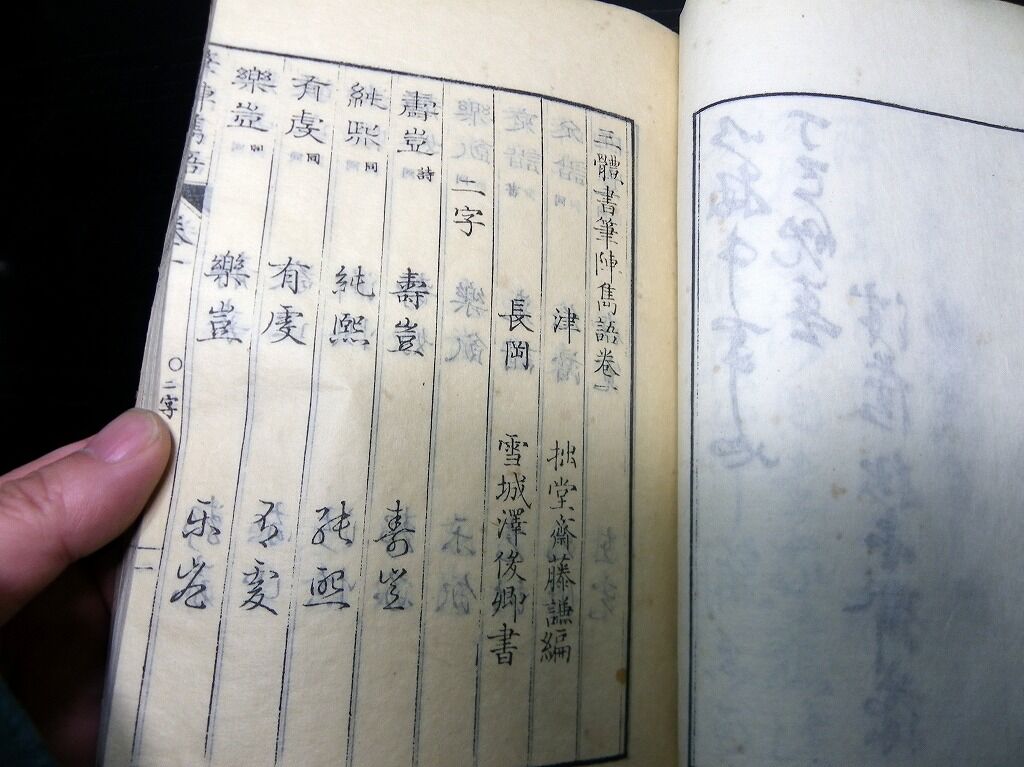 三體書筆陣雋語卷一
津 拙堂齋藤謙編
長岡 雪城澤俊卿書
二字
壽豈 詩 壽豈 壽豈
純熙 同 純熙 純熙
有虔 同 有虔 有虔
樂豈 同 樂豈 樂豈
陣雋語 卷一 〇二字 一